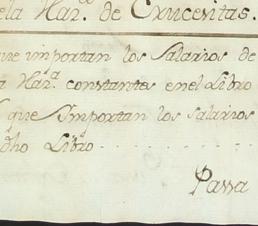 ela Haz.ᵃ de Cruceritas.
que importan los Salarios de
a Haz.ᵃ constantes en el Libro
que Importan los salarios
dho Libro
Passa